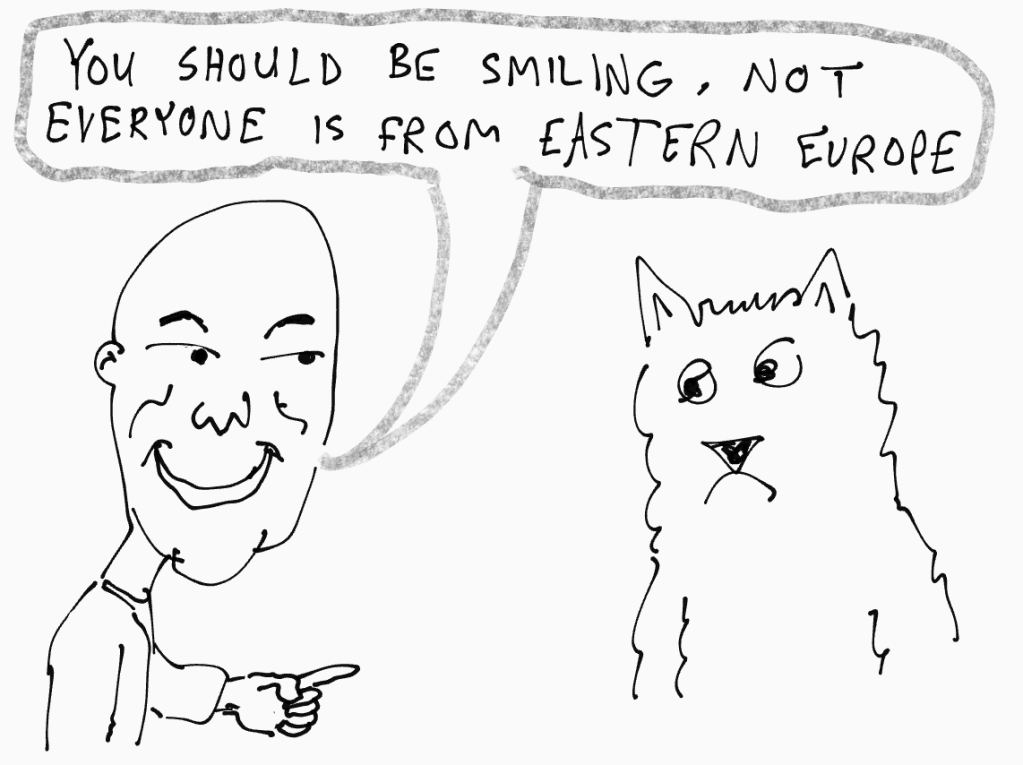 YOU SHOULD BE SMILING, NOT
EVERYONE IS FROM EASTERN EUROPE